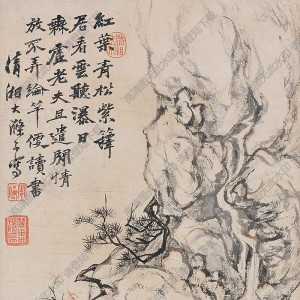 紅葉青松紫籜
君看雲聽瀑日
霖霍老夫且遣閒情
放不弄綸竿便讀書
清湘大滌子寫